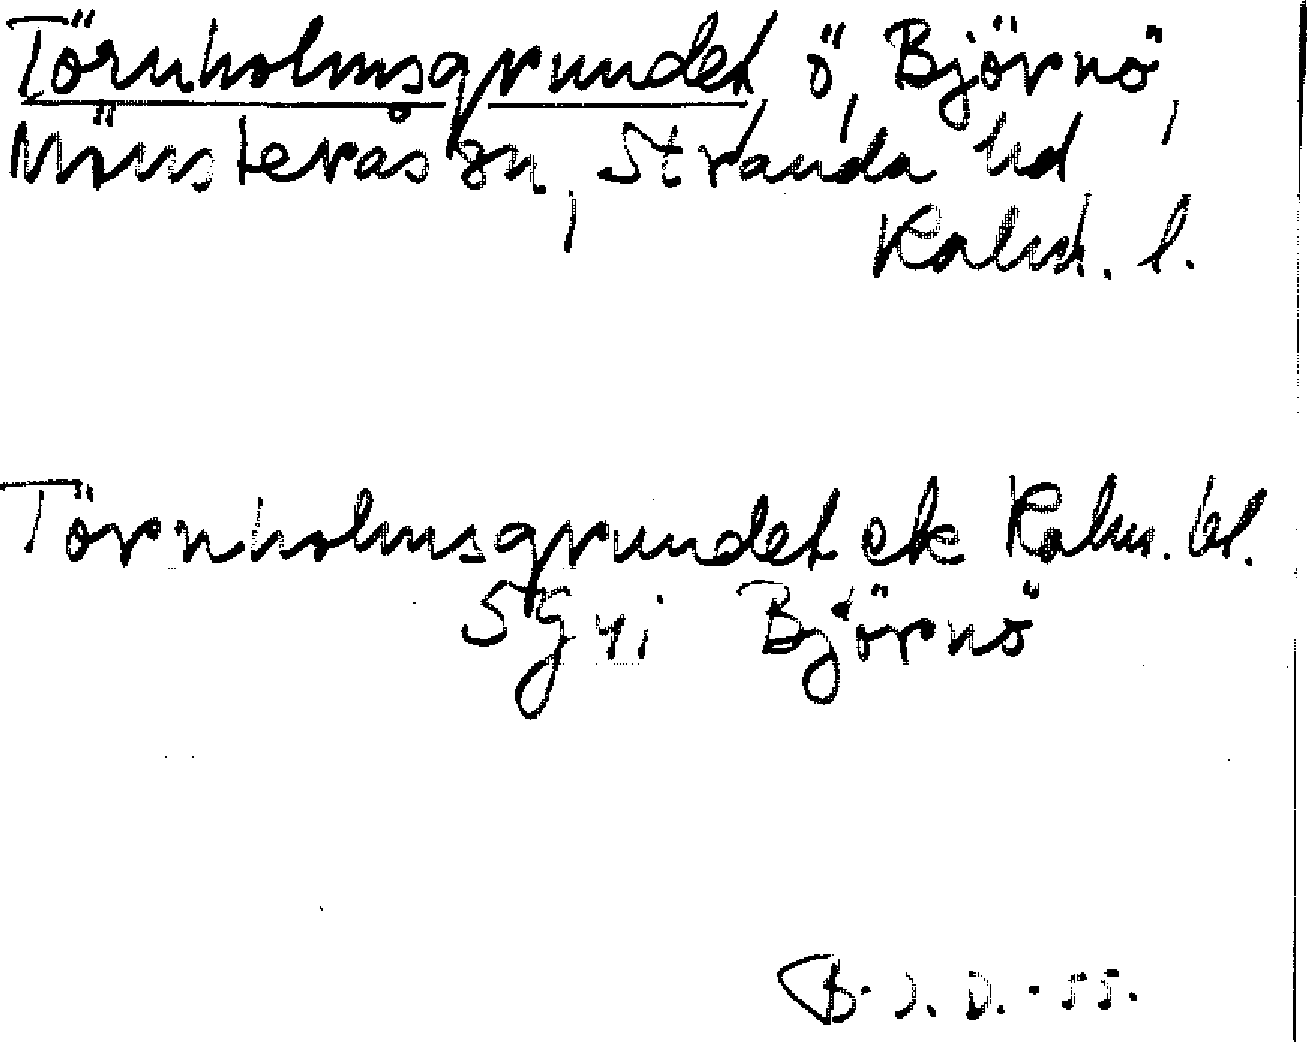 Törnholmsgrundet, ö, Björnö,
Mönsterås sn, Stranda hd
Kalm. l.
Törnholmsgrundet ek Kalm. bl.
Björnö
B. J. D. -55.